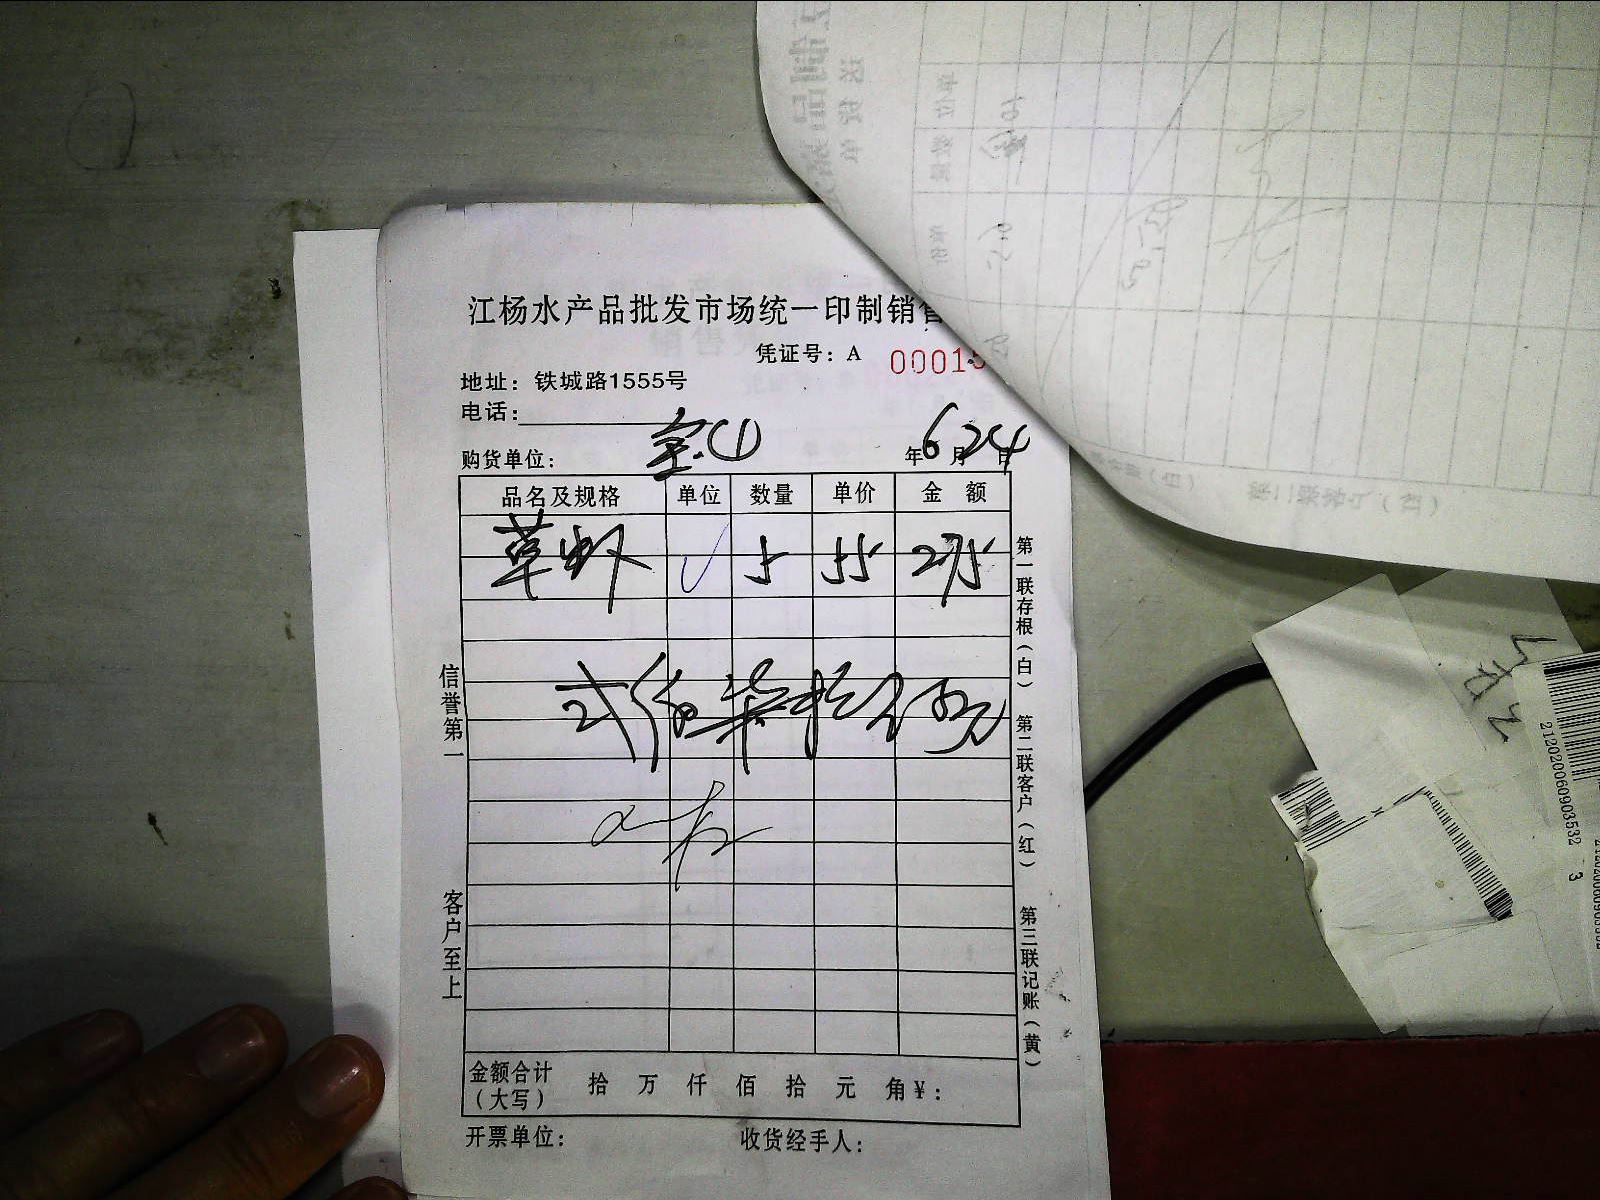 江杨水产品批发市场统一印制销售
凭证号：A 00015
地址：铁城路1555号
电话：
购货单位： 宝① 年6月24日
品名及规格 单位 数量 单价 金额
草虾 ✓ 5 55 275
弍佰柒拾伍元
信誉第一
客户至上
第一联存根（白）
第二联客户（红）
第三联记账（黄）
金额合计（大写） 拾 万 仟 佰 拾 元 角 ¥：
开票单位： 收货经手人：
212020060903532 3